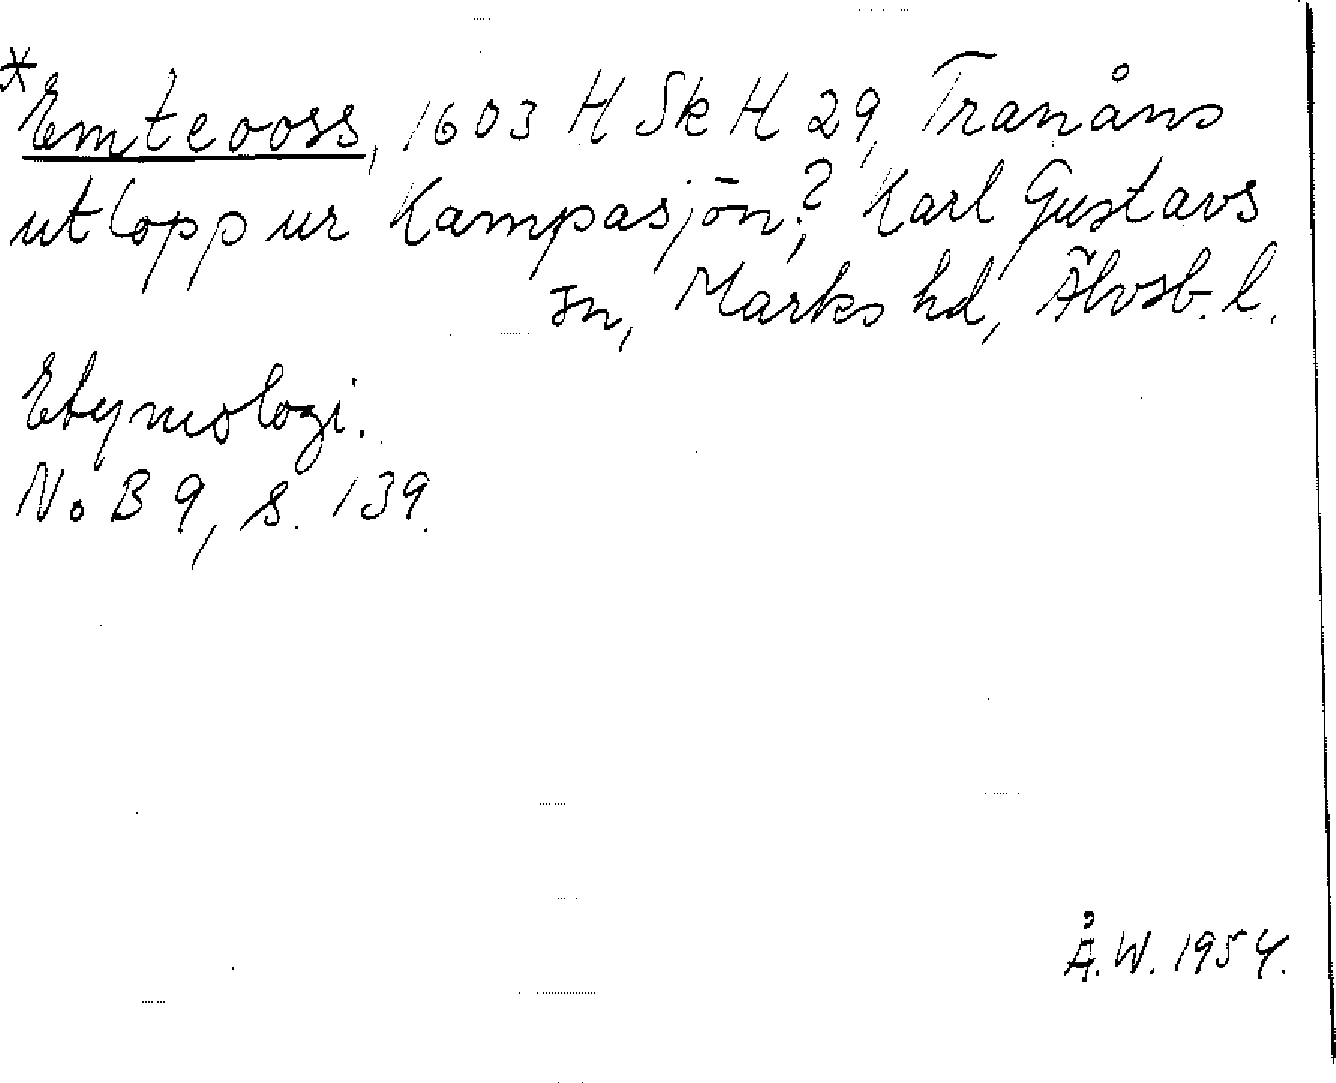 *Emteooss, 1603 HSkH 29, Tranåns
utlopp ur Kampasjön?, Karl Gustavs
sn, Marks hd, Älvsb. l.
Etymologi.
NoB 9, s. 139.
Å.W. 1954.